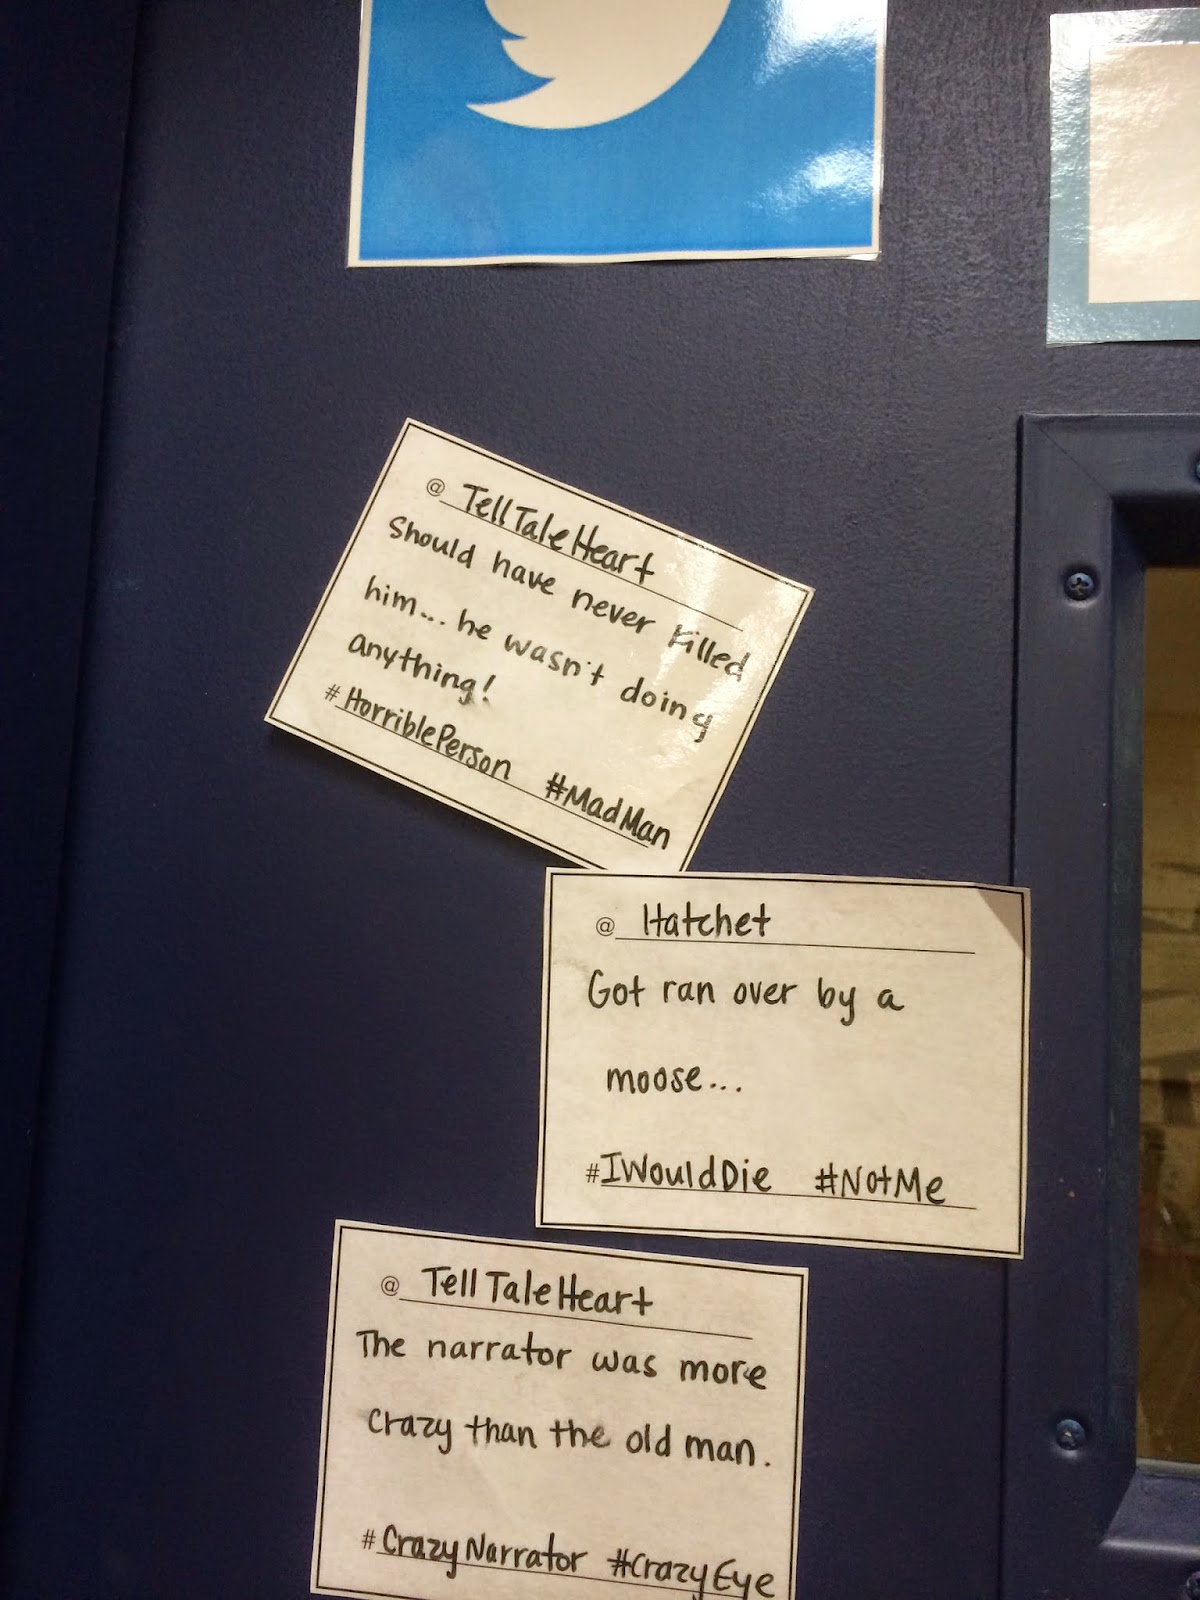 @ TellTaleHeart
Should have never killed
him... he wasn't doing
anything!
#HorriblePerson #MadMan
@ Hatchet
Got ran over by a
moose...
#IWouldDie #NotMe
@ TellTaleHeart
The narrator was more
crazy than the old man.
#CrazyNarrator #CrazyEye